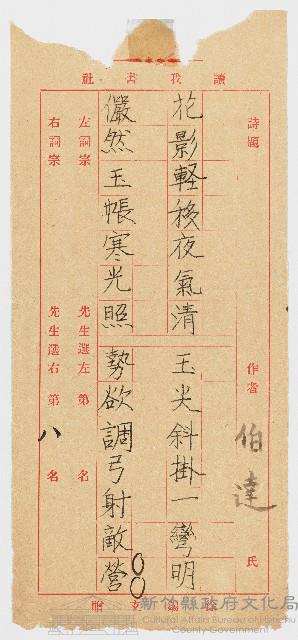 讀我書社
詩題
作者 伯達 氏
花影軽移夜氣清 玉光斜掛一彎明
儼然玉帳寒光照 勢欲調弓射敵營
左詞宗 先生選左第 名
右詞宗 先生選右第 八 名
贈
新竹縣政府文化局
Cultural Affairs Bureau of Hsinchu County Government